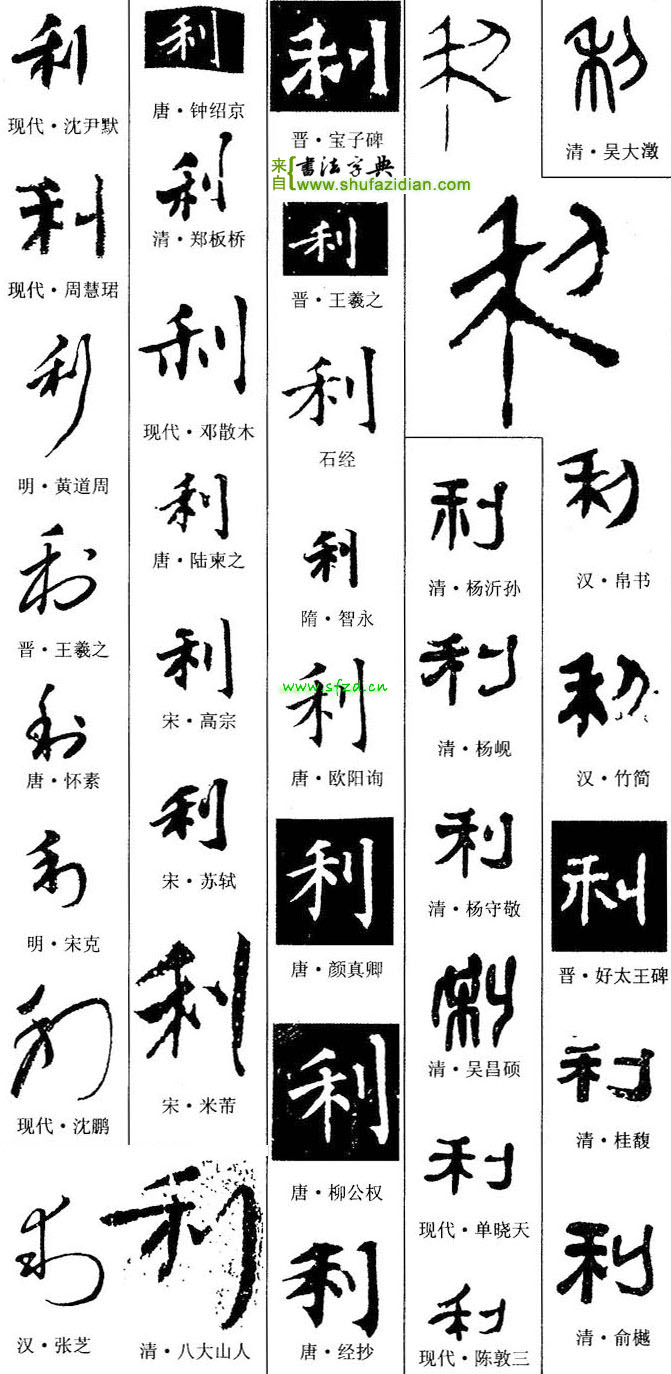 利
现代·沈尹默
利
现代·周慧珺
利
明·黄道周
利
晋·王羲之
利
唐·怀素
利
明·宋克
利
现代·沈鹏
利
汉·张芝
利
唐·钟绍京
利
清·郑板桥
利
现代·邓散木
利
唐·陆柬之
利
宋·高宗
利
宋·苏轼
利
宋·米芾
利
清·八大山人
利
晋·宝子碑
来自{书法字典
www.shufazidian.com
利
晋·王羲之
利
石经
利
隋·智永
利
www.sfzd.cn
唐·欧阳询
利
唐·颜真卿
利
唐·柳公权
利
唐·经抄
利
利
利
清·杨沂孙
利
清·杨岘
利
清·杨守敬
利
清·吴昌硕
利
现代·单晓天
利
现代·陈敦三
利
清·吴大澂
利
汉·帛书
利
汉·竹简
利
晋·好太王碑
利
清·桂馥
利
清·俞樾